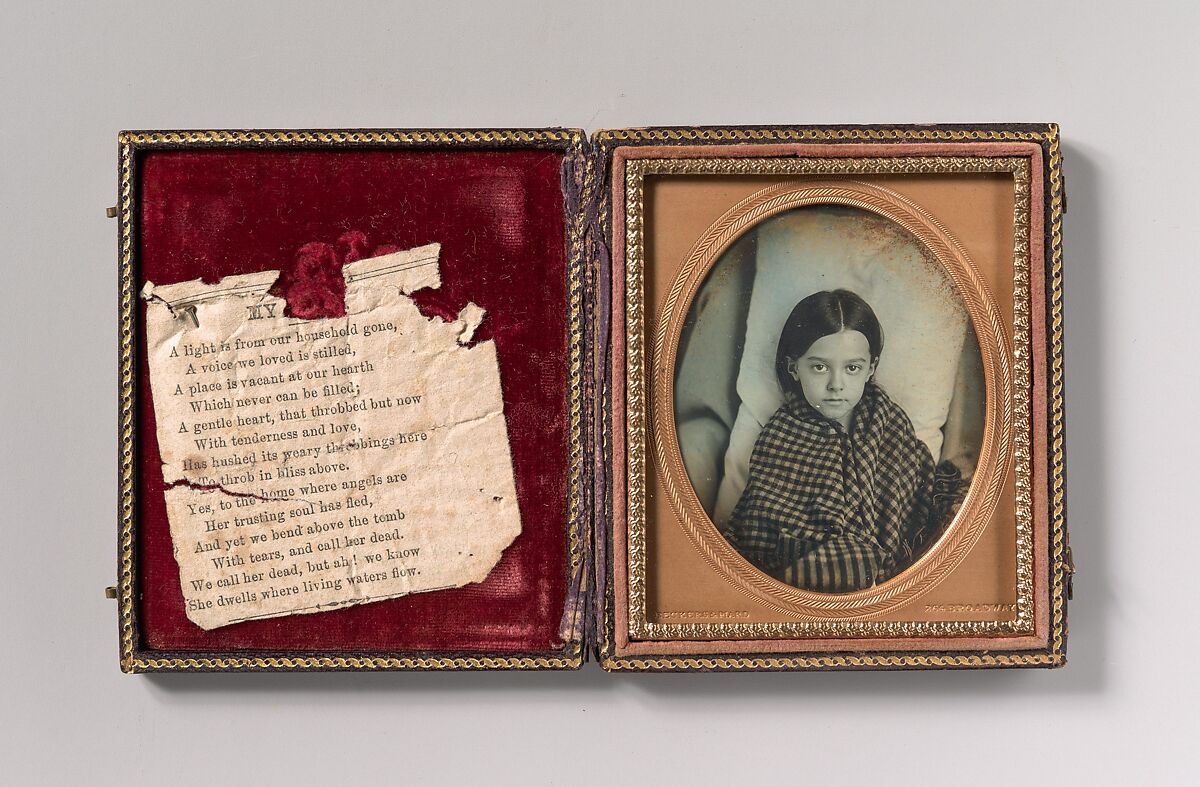 MY
A light is from our household gone,
A voice we loved is stilled,
A place is vacant at our hearth
Which never can be filled;
A gentle heart, that throbbed but now
With tenderness and love,
Has hushed its weary throbbings here
To throb in bliss above.
Yes, to the home where angels are
Her trusting soul has fled,
And yet we bend above the tomb
With tears, and call her dead.
We call her dead, but ah! we know
She dwells where living waters flow.
264 BROADWAY